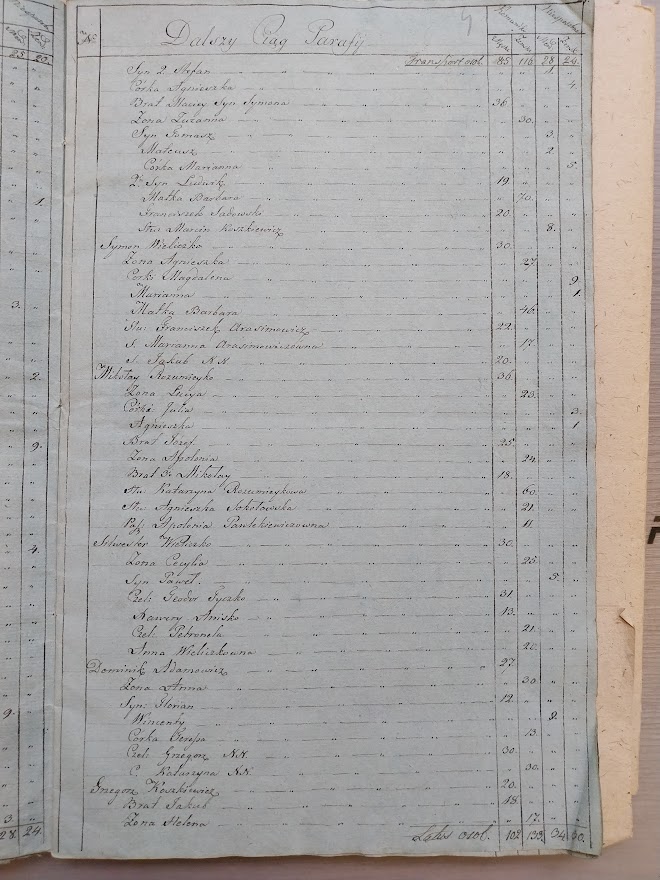 No Dalszy Ciąg Parafij
Transport osob. 85 116 28 24
Syn 2 Stefan 1
Córka Agnieszka 4
Brat Maciey Syn Symona 36
Zona Zuzanna 30
Syn Tomasz 3
Mateusz 2
Córka Marianna 5
2 Syn Ludwik 19
Matka Barbara 70
Franciszek Sadowski 20
Stu Marcin Koszkiewicz 8
Symon Wieliczko 30
Zona Agnieszka 27
Córki Magdalena 9
Marianna 1
Matka Barbara 46
Franciszek Arasimowicz 22
S. Marianna Arasimowiczówna 17
S. Jakub N.N. 20
Mikołay Rozumieyko 36
Zona Łucya 23
Córki Julia 3
Agnieszka 1
Brat Jozef 25
Zona Apolonia 24
Brat 3 Mikołay 18
Stu Katarzyna Rozumieykowa 60
Stu Agnieszka Sokołowska 21
Pas. Apolonia Pawlukiewiczowna 11
Silwester Wieliczko 30
Zona Cecylia 23
Syn Paweł 5
Czel. Teodor 31
Xawery Anisko 13
Czel. Petronela 21
Anna Wieliczkowna 20
Dominik Adamowicz 27
Zona Anna 30
Syn Florian 12
Wincenty 9
Córka Teresa 13
Czel. Grzegorz N.N. 30
C. Katarzyna N.N. 30
Grzegorz Koszkiewicz 20
Brat Jakub 18
Zona Helena 17
Latus osob. 102 133 34 30